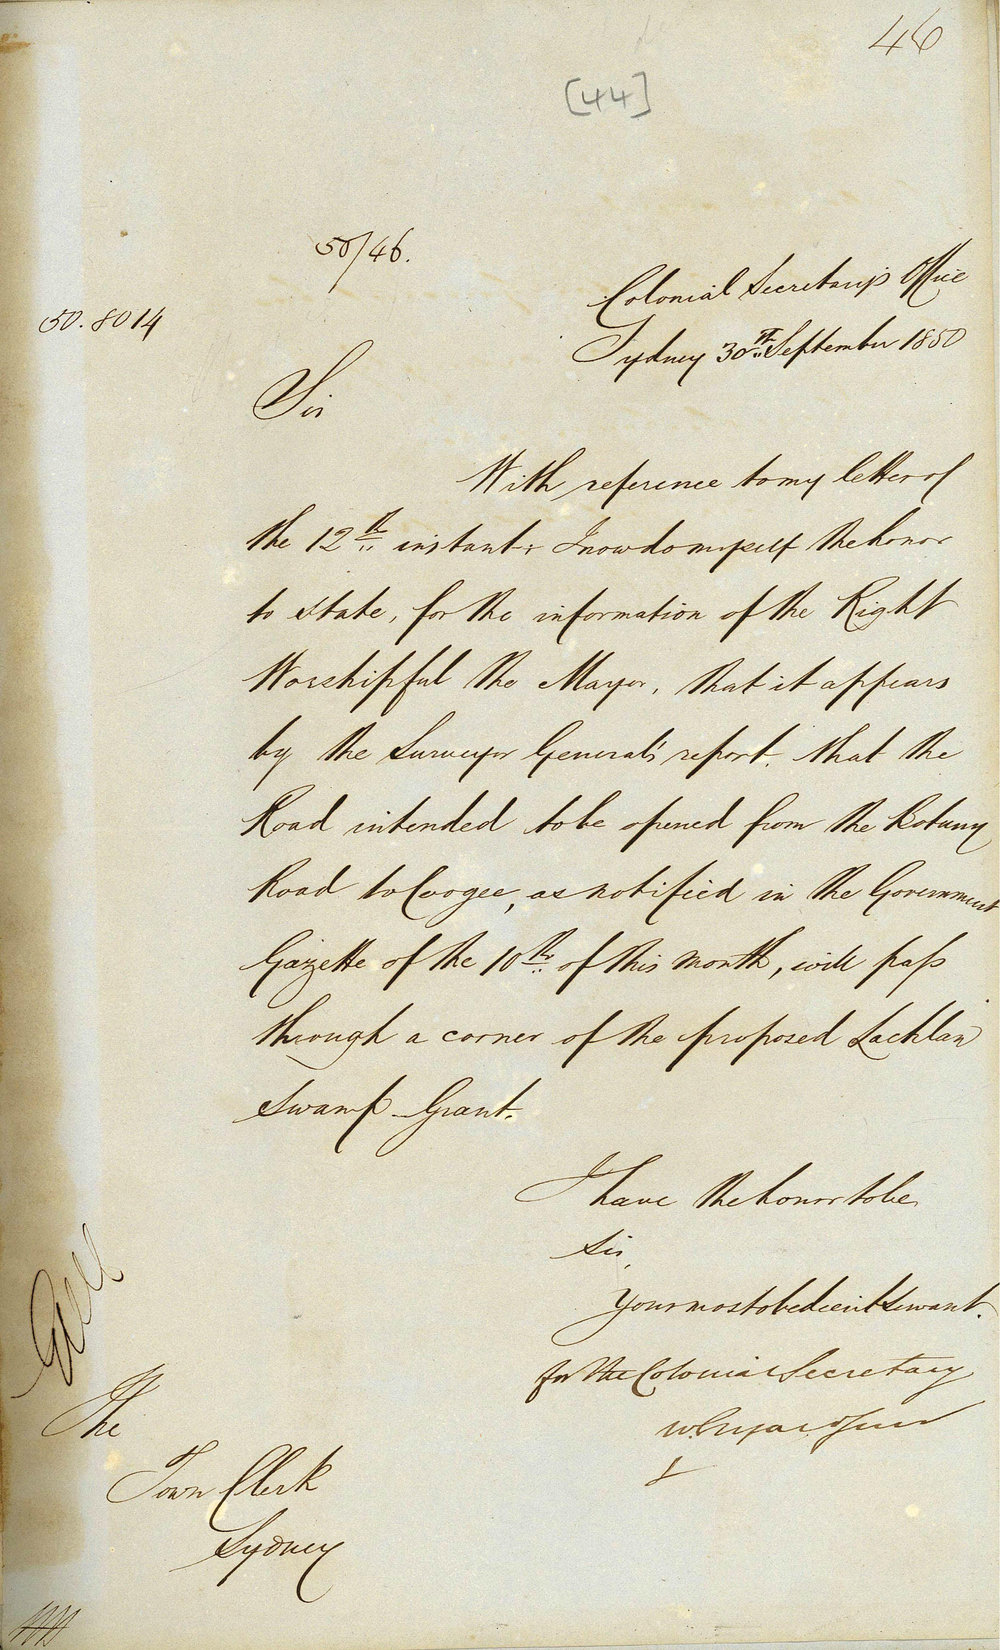 46
[44]
50/46.
Colonial Secretary's Office
50.8014
Sydney 30th September 1850
Sir
With reference to my letter of
the 12th instant, I now do myself the honor
to state, for the information of the Right
Worshipful the Mayor, that it appears
by the Surveyor General's report, that the
Road intended to be opened from the Botany
Road to Coogee, as notified in the Government
Gazette of the 10th of this month, will pass
through a corner of the proposed Lachlan
Swamp Grant.
I have the honor to be
Sir,
Your most obedient Servant.
for the Colonial Secretary
The
Town Clerk
Sydney